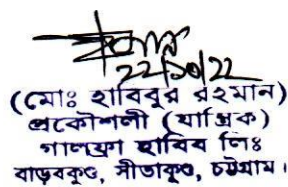 22/10/22
(মোঃ হাবিবুর রহমান)
প্রকৌশলী (যান্ত্রিক)
গালফ্রা হাবিব লিঃ
বাড়বকুণ্ড, সীতাকুণ্ড, চট্টগ্রাম।